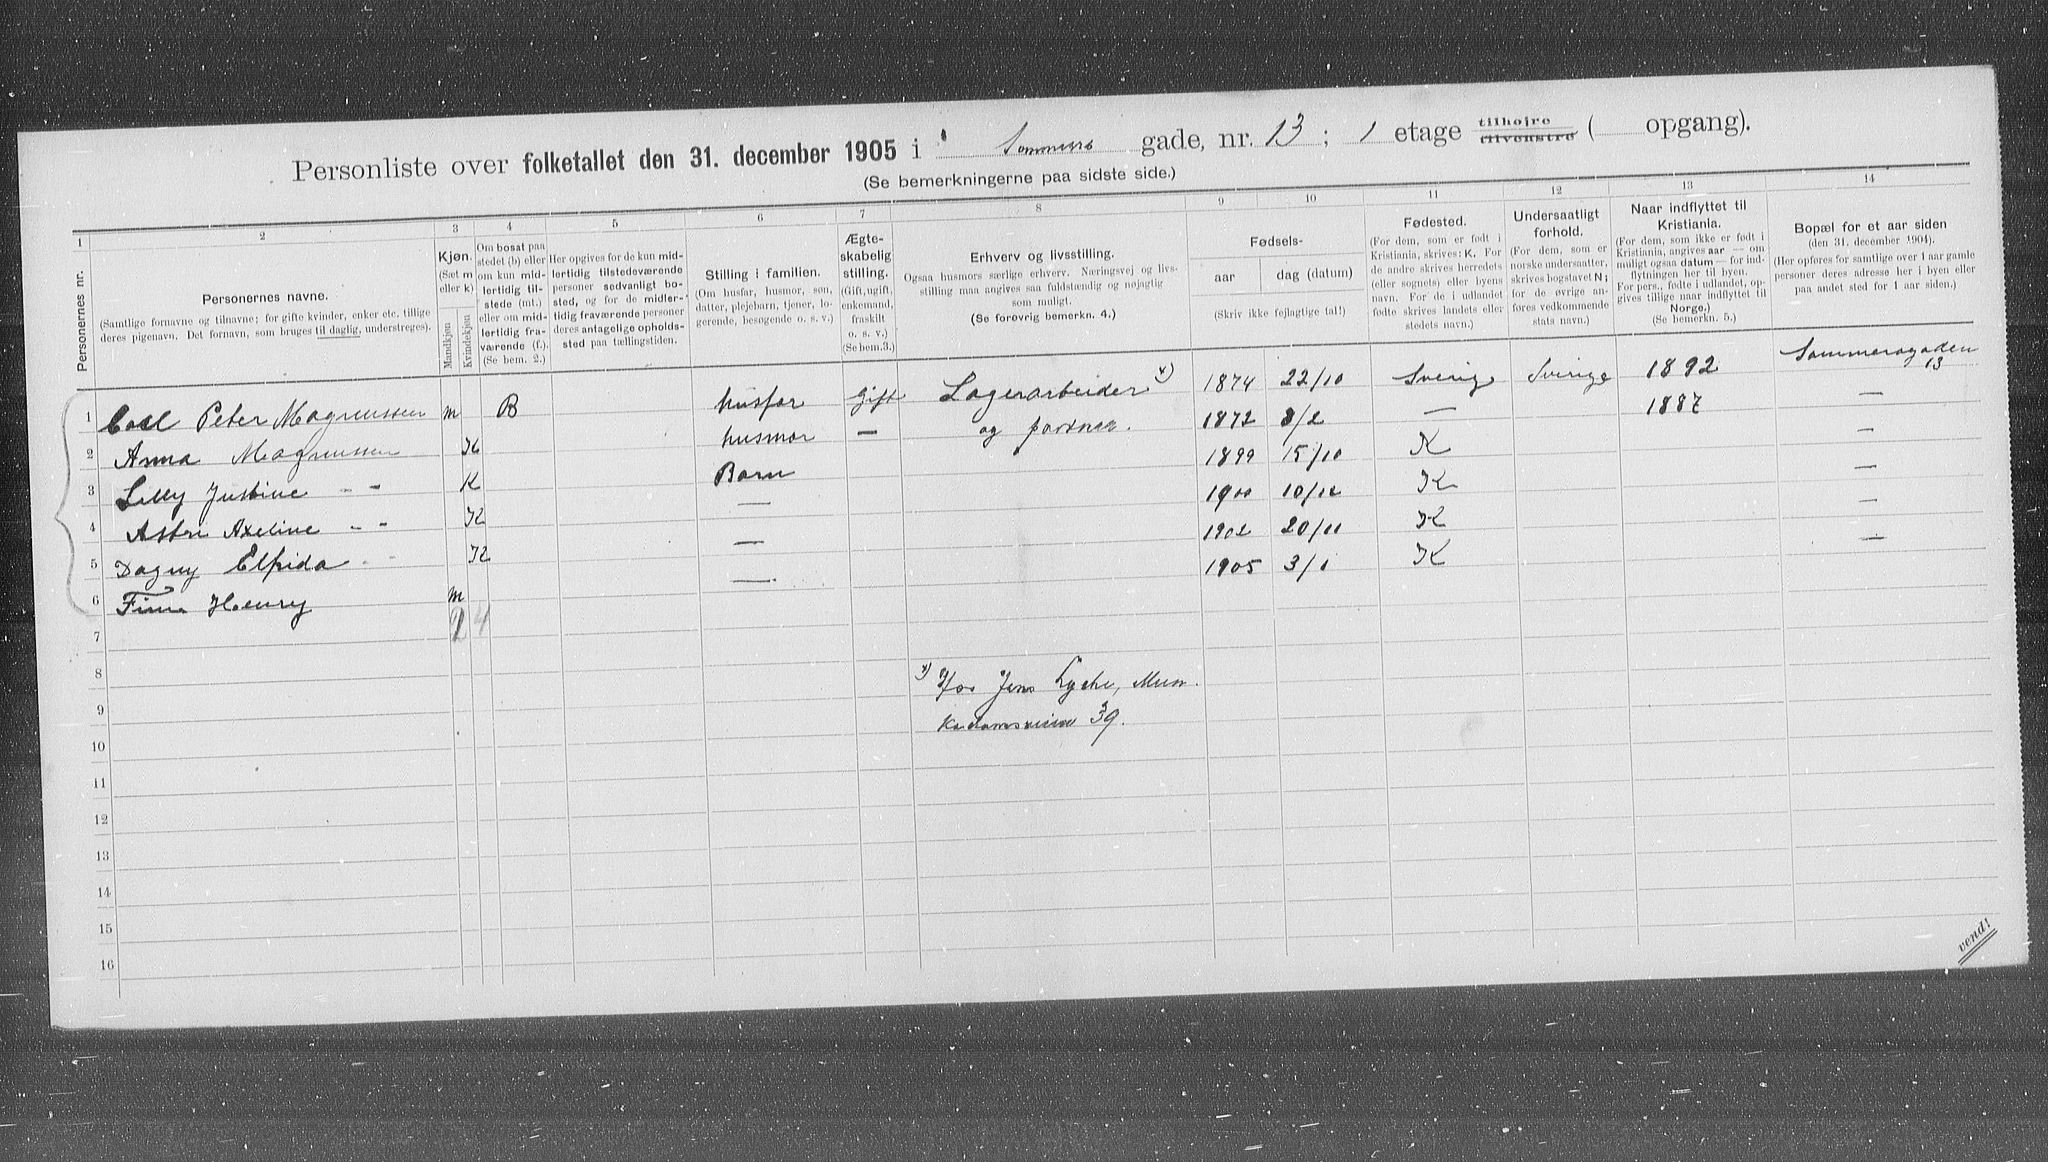 Personliste over folketallet den 31. december 1905 i Sommers gade, nr. 13; 1 etage tilhøjre tilvenstre ( opgang).
(Se bemerkningerne paa sidste side.)
1 2 3 4 5 6 7 8 9 10 11 12 13 14
Personernes nr.
Personernes navne.
(Samtlige fornavne og tilnavne; for gifte kvinder, enker etc. tillige
deres pigenavn. Det fornavn, som bruges til daglig, understreges).
Kjøn.
(Sæt m
eller k)
Mandkjøn
Kvindekjøn
Om bosat paa
stedet (b) eller
om kun mid-
lertidig til-
stede (mt.)
eller om mid-
lertidig fra-
værende (f.).
(Se bem. 2.)
Her opgives for de kun mid-
lertidig tilstedeværende
personer sedvanligt bo-
sted, og for de midler-
tidig fraværende personer
deres antagelige opholds-
sted paa tællingstiden.
Stilling i familien.
(Om husfar, husmor, søn,
datter, plejebarn, tjener, lo-
gerende, besøgende o. s. v.)
Ægte-
skabelig
stilling.
(Gift, ugift,
enkemand,
fraskilt
o. s. v.)
(Se bem.3.)
Erhverv og livsstilling.
Ogsaa husmors særlige erhverv. Næringsvej og livs-
stilling maa angives saa fuldstændig og nøjagtig
som muligt.
(Se forøvrig bemerkn. 4.)
Fødsels-
aar dag (datum)
(Skriv ikke fejlagtige tal!)
Fødested.
(For dem, som er født i
Kristiania, skrives: K. For
de andre skrives herredets
(eller sognets) eller byens
navn. For de i udlandet
fødte skrives landets eller
stedets navn.)
Undersaatligt
forhold.
(For dem, som er
norske undersaatter,
skrives bogstavet N;
for de øvrige an-
føres vedkommende
stats navn.)
Naar indflyttet til
Kristiania.
(For dem, som ikke er født i
Kristiania, angives aar — om
muligt ogsaa datum — for ind-
flytningen her til byen.
For pers., fødte i udlandet, op-
gives tillige naar indflyttet til
Norge.)
(Se bemerkn. 5.)
Bopæl for et aar siden
(den 31. december 1904).
(Her opføres for samtlige over 1 aar gamle
personer deres adresse her i byen eller
paa andet sted for 1 aar siden.)
1 Carl Peter Magnussen m B husfar Gift Lagerarbeider x) 1874 22/10 Sverig Sverige 1892 Sommersgaden 13
2 Anna Magnussen K husmor — og 1872 8/2 — 1887 —
3 Lilly Justine - - K Barn 1899 15/10 K —
4 Astri Axeline - - K — 1900 10/12 K —
5 Dagny Elfrida - K — 1902 20/11 K —
6 Finn Henry m — 1905 3/1 K
7 2 4
8 x) Hos Jens Lyche, Mun-
9 kedamsveien 39.
10
11
12
13
14
15
16
vend!